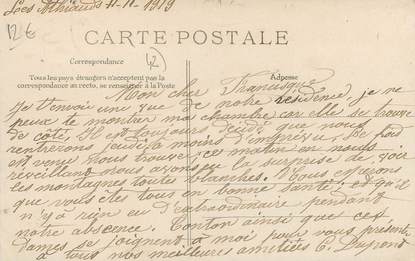 Les Athiauds 11-11-1919
12€
CARTE POSTALE
Correspondance
2
Adresse
Tous les pays étrangers n'acceptent pas la
correspondance au recto, se renseigner à la Poste
Mon cher
Je t'envoie une vue de notre résidence je ne
peux te montrer ma chambre car elle se trouve
de côté. Il est toujours décidé que nous
rentrerons jeudi à moins d'imprévu. Le froid
est venu nous trouver, ce matin en nous
réveillant nous avons eu la surprise de voir
les montagnes toute blanches. Nous espérons
que vous êtes tous en bonne santé, et qu'il
n'y a rien eu d'extraordinaire pendant
notre absence. Tonton ainsi que ces
dames se joignent à moi pour vous présenter
à tous nos meilleures amitiés C. Dupont